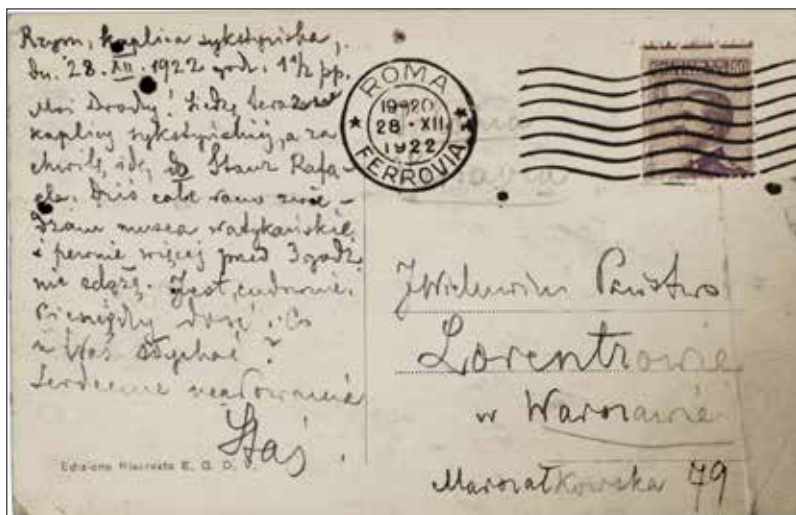 Rzym, kaplica sykstyńska,
dn. 28.XII.1922 godz. 1 1/2 pp.
Moi Drodzy! Siedzę teraz w
kaplicy sykstyńskiej, a za
chwilę idę do Stanz Rafa-
ela. Dziś całe rano zwie-
dzam muzea watykańskie
i pewnie więcej przed 3 godz.
nie zdążę. Jest cudownie.
Pieniędzy dosyć. Co
u Was słychać?
Serdeczne ucałowania
Staś.
Edizione Riservata E. G. D.
ROMA
1920
28 · XII
1922
FERROVIA
JWielmożni Państwo
Lorentzowie
w Warszawie
Marszałkowska 79